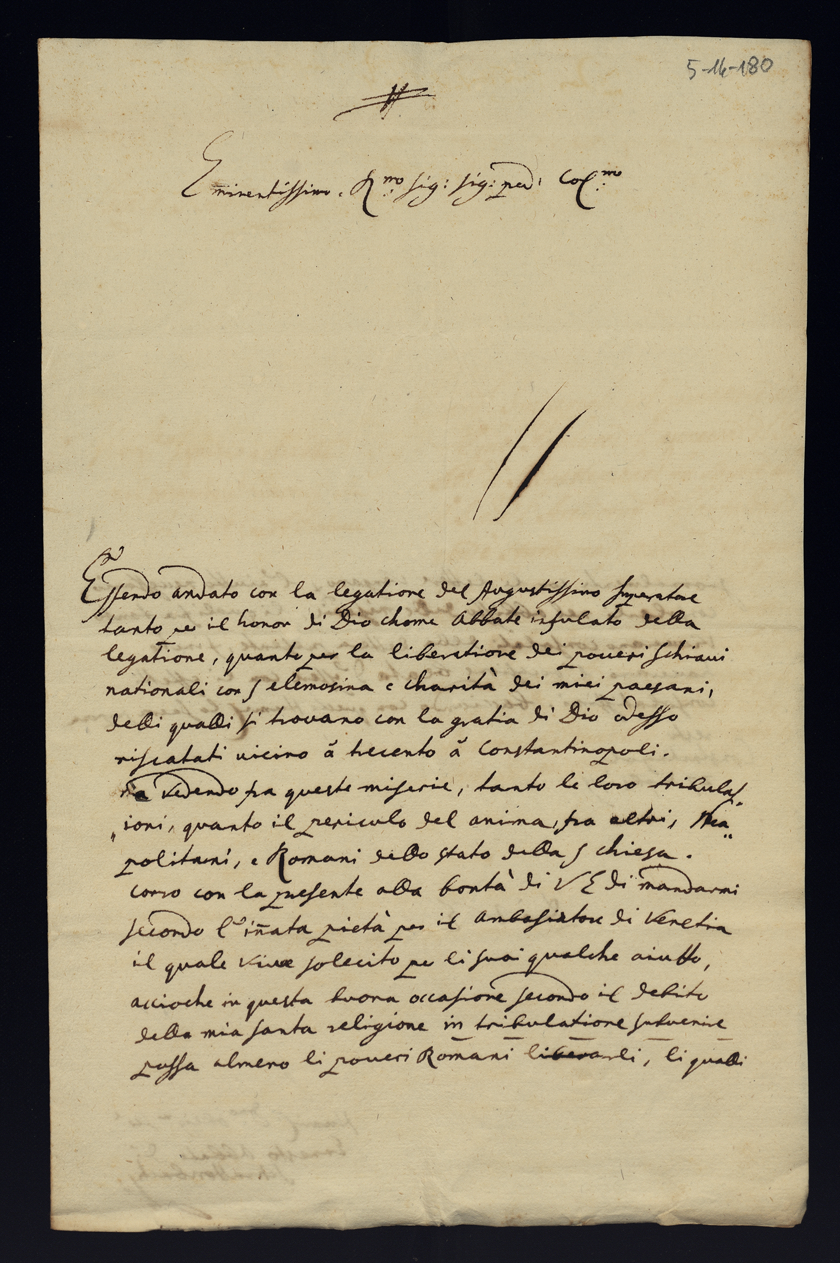 5-14-180
Eminentissimo. Rmo Sig: Sig: pad: Colmo
Essendo andato con la legatione del Augustissimo Imperatore
tanto per il honor di Dio chome Abbate infulato della
legatione, quanto per la liberatione dei poueri schiaui
nationali con l elemosina e charità dei miei paesani,
delli qualli si trovano con la gratia di Dio adesso
riscatati vicino à trecento à Constantinopoli.
vedendo fra queste miserie, tanto le loro tribulas=
"ioni, quanto il periculo del anima, fra altri, Nea=
politani, e Romani dello stato della S chiesa.
corro con la presente alla bontà di V E di mandarmi
secondo l'iñata pietà per il Ambasiatore di Venetia
il quale vive solecito per li suoi qualche aiutto,
accioche in questa buona occasione secondo il debito
della mia santa religione in tribulatione subvenire
possa almeno li poueri Romani liberarli, li qualli